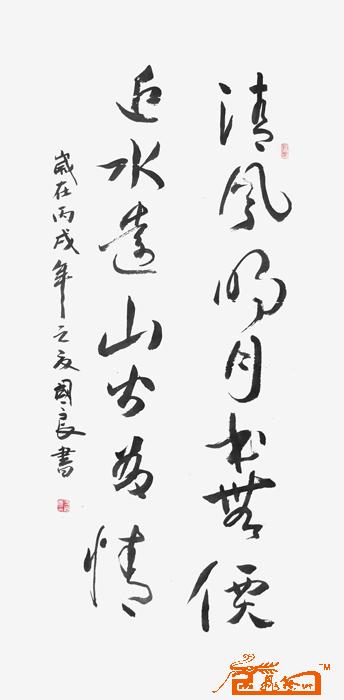 清風明月本無價
近水遠山皆有情
歲在丙戌年之夏國良書
TM